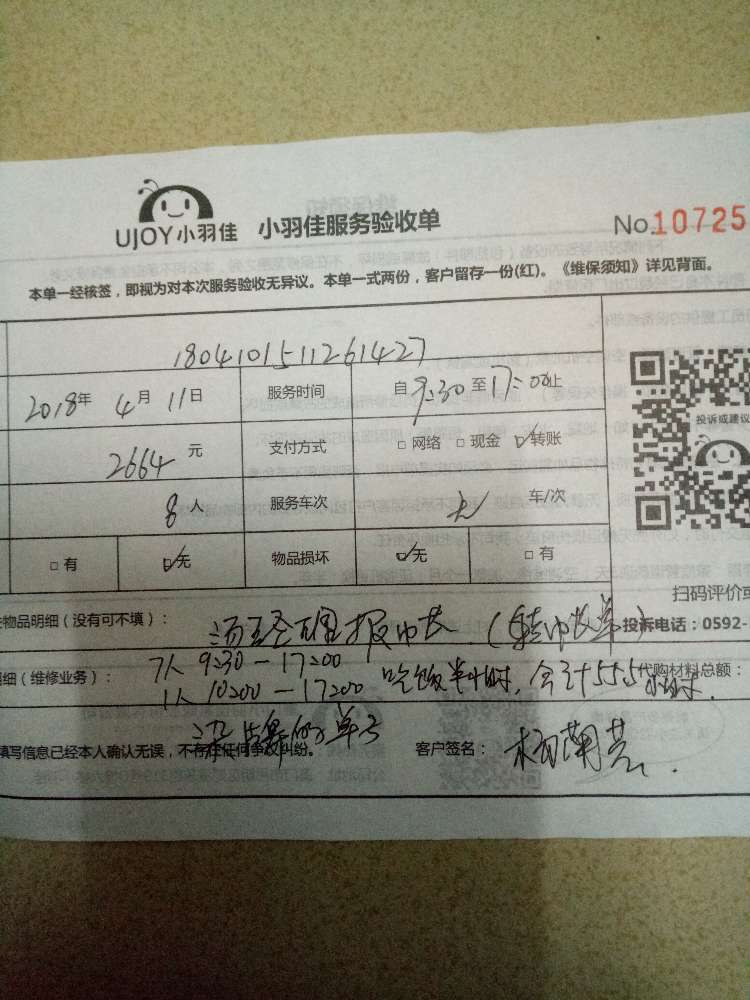 UJOY小羽佳 小羽佳服务验收单 No.10725
本单一经核签，即视为对本次服务验收无异议。本单一式两份，客户留存一份(红)。《维保须知》详见背面。
1804101511261427
2018年 4月 11日 服务时间 自 9:30 至 17:00 止
投诉或建议
2664 元 支付方式 □网络 □现金 ☑转账
8人 服务车次 车/次
□有 ☑无 物品损坏 ☑无 □有
扫码评价或
物品明细（没有可不填）： 报 （转 单） 投诉电话：0592-
明细（维修业务）： 7人 9:30－17:00
1人 10:00－17:00 吃饭半小时，合计55.5小时. 代购材料总额：
单子
填写信息已经本人确认无误，不存在任何争议纠纷。 客户签名：